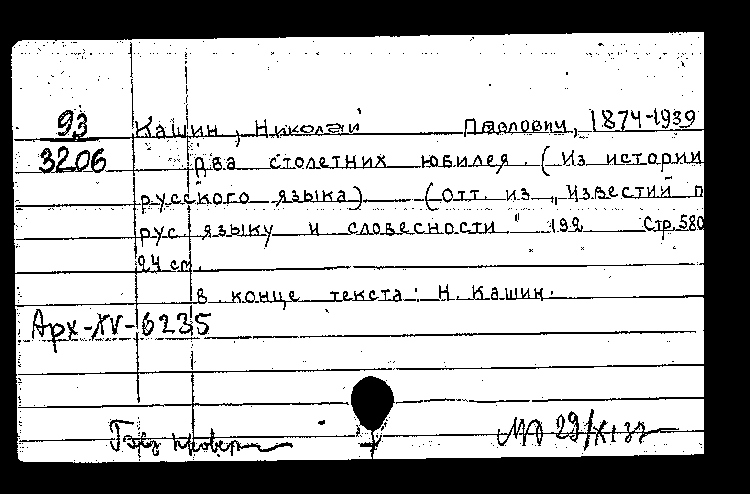 93 Кашин, Николай Павлович, 1874-1939
3206 Два столетних юбилея. (Из истории
русского языка) (Отт. из „Известий п
рус. языку и словесности" 192 Стр. 580
24 см.
В конце текста: Н. Кашин.
Арх-XV-6235
29/XI